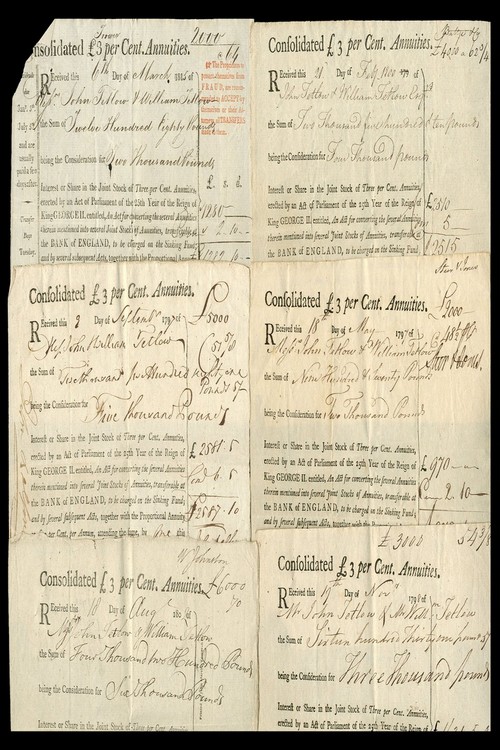 2000
Consolidated £3 per Cent. Annuities.
Received this 6th Day of March 1815
John Tetlow & William Tetlow
the Sum of Twelve Hundred Eighty Pounds
being the Consideration for Two Thousand Pounds
Interest or Share in the Joint Stock of Three per Cent. Annuities,
erected by an Act of Parliament of the 25th Year of the Reign of
King GEORGE II. entitled, An Act for converting the several Annuities
therein mentioned into several Joint Stocks of Annuities, transferable
at the BANK of ENGLAND, to be charged on the Sinking Fund;
and by several subsequent Acts, together with the Proportional
£ s. d.
1280
2 10
1282 10
Consolidated £3 per Cent. Annuities.
Received this 21 Day of
John Tetlow & William Tetlow Esqrs
the Sum of Two Thousand five hundred & ten pounds
being the Consideration for Four Thousand pounds
Interest or Share in the Joint Stock of Three per Cent. Annuities,
erected by an Act of Parliament of the 25th Year of the Reign of
King GEORGE II. entitled, An Act for converting the several Annuities
therein mentioned into several Joint Stocks of Annuities, transferable at
the BANK of ENGLAND, to be charged on the Sinking Fund;
£2510
5
£2515
Consolidated £3 per Cent. Annuities.
£5000
Received this 2 Day of Septembr 1797 of
Messrs John & William Tetlow
the Sum of Two thousand five Hundred Eighty one
Pounds 5/
being the Consideration for Five thousand Pounds
Interest or Share in the Joint Stock of Three per Cent. Annuities,
erected by an Act of Parliament of the 25th Year of the Reign of
King GEORGE II. entitled, An Act for converting the several Annuities
therein mentioned into several Joint Stocks of Annuities, transferable at
the BANK of ENGLAND, to be charged on the Sinking Fund;
and by several subsequent Acts, together with the Proportional Annuity
£2581.5
6.5
£2587.10
Consolidated £3 per Cent. Annuities.
£2000
Received this 18 Day of May 1797 of
Messrs John Tetlow & William Tetlow
the Sum of Nine Hundred & Seventy Pounds
being the Consideration for Two Thousand Pounds
Interest or Share in the Joint Stock of Three per Cent. Annuities,
erected by an Act of Parliament of the 25th Year of the Reign of
King GEORGE II. entitled, An Act for converting the several Annuities
therein mentioned into several Joint Stocks of Annuities, transferable at
the BANK of ENGLAND, to be charged on the Sinking Fund;
and by several subsequent Acts, together with the
£970
2.10
W Johnston
Consolidated £3 per Cent. Annuities.
£6000
70
Received this 18 Day of Augt
Messrs John Tetlow & William Tetlow
the Sum of Four Thousand two Hundred Pounds
being the Consideration for Six Thousand Pounds
Interest or Share in the Joint Stock of Three per Cent. Annuities,
£3000
Consolidated £3 per Cent. Annuities.
Received this 17th Day of Novr
Mr John Tetlow & Mr Willm Tetlow
the Sum of Sixteen hundred thirty one pounds 5/
being the Consideration for Three thousand pounds
Interest or Share in the Joint Stock of Three per Cent. Annuities,
erected by an Act of Parliament of the 25th Year of the Reign of